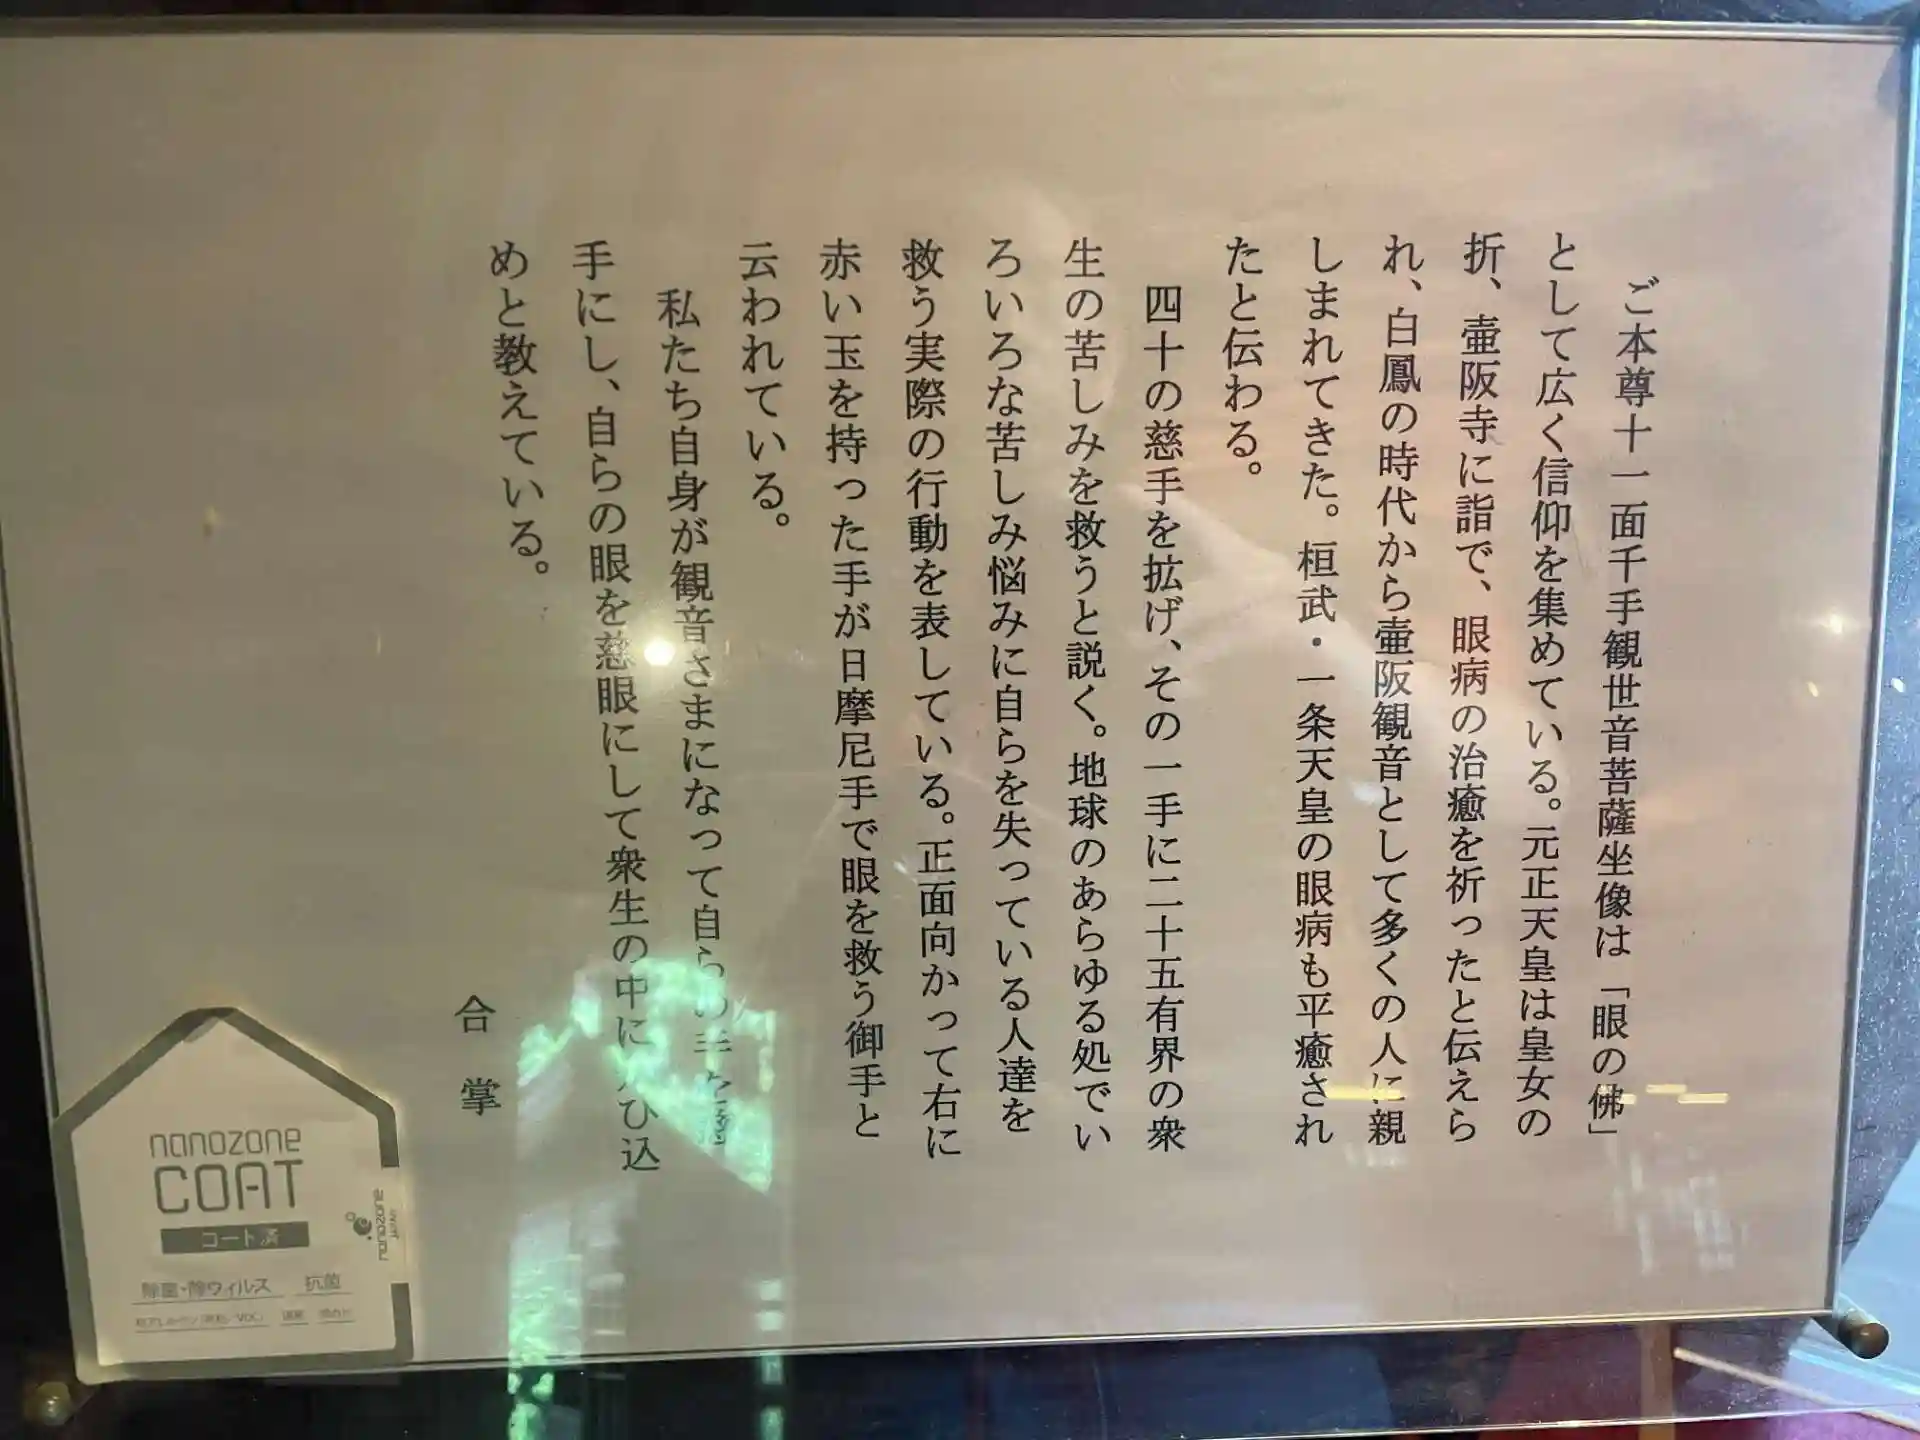 ご本尊十一面千手観世音菩薩坐像は「眼の佛」
として広く信仰を集めている。元正天皇は皇女の
折、壷阪寺に詣で、眼病の治癒を祈ったと伝えら
れ、白鳳の時代から壷阪観音として多くの人に親
しまれてきた。桓武・一条天皇の眼病も平癒され
たと伝わる。
四十の慈手を拡げ、その一手に二十五有界の衆
生の苦しみを救うと説く。地球のあらゆる処でい
ろいろな苦しみ悩みに自らを失っている人達を
救う実際の行動を表している。正面向かって右に
赤い玉を持った手が日摩尼手で眼を救う御手と
云われている。
私たち自身が観音さまになって自らの手を慈
手にし、自らの眼を慈眼にして衆生の中に ひ込
めと教えている。
合掌
nanozone
COAT
コート済
除菌・除ウィルス 抗菌
nanozone